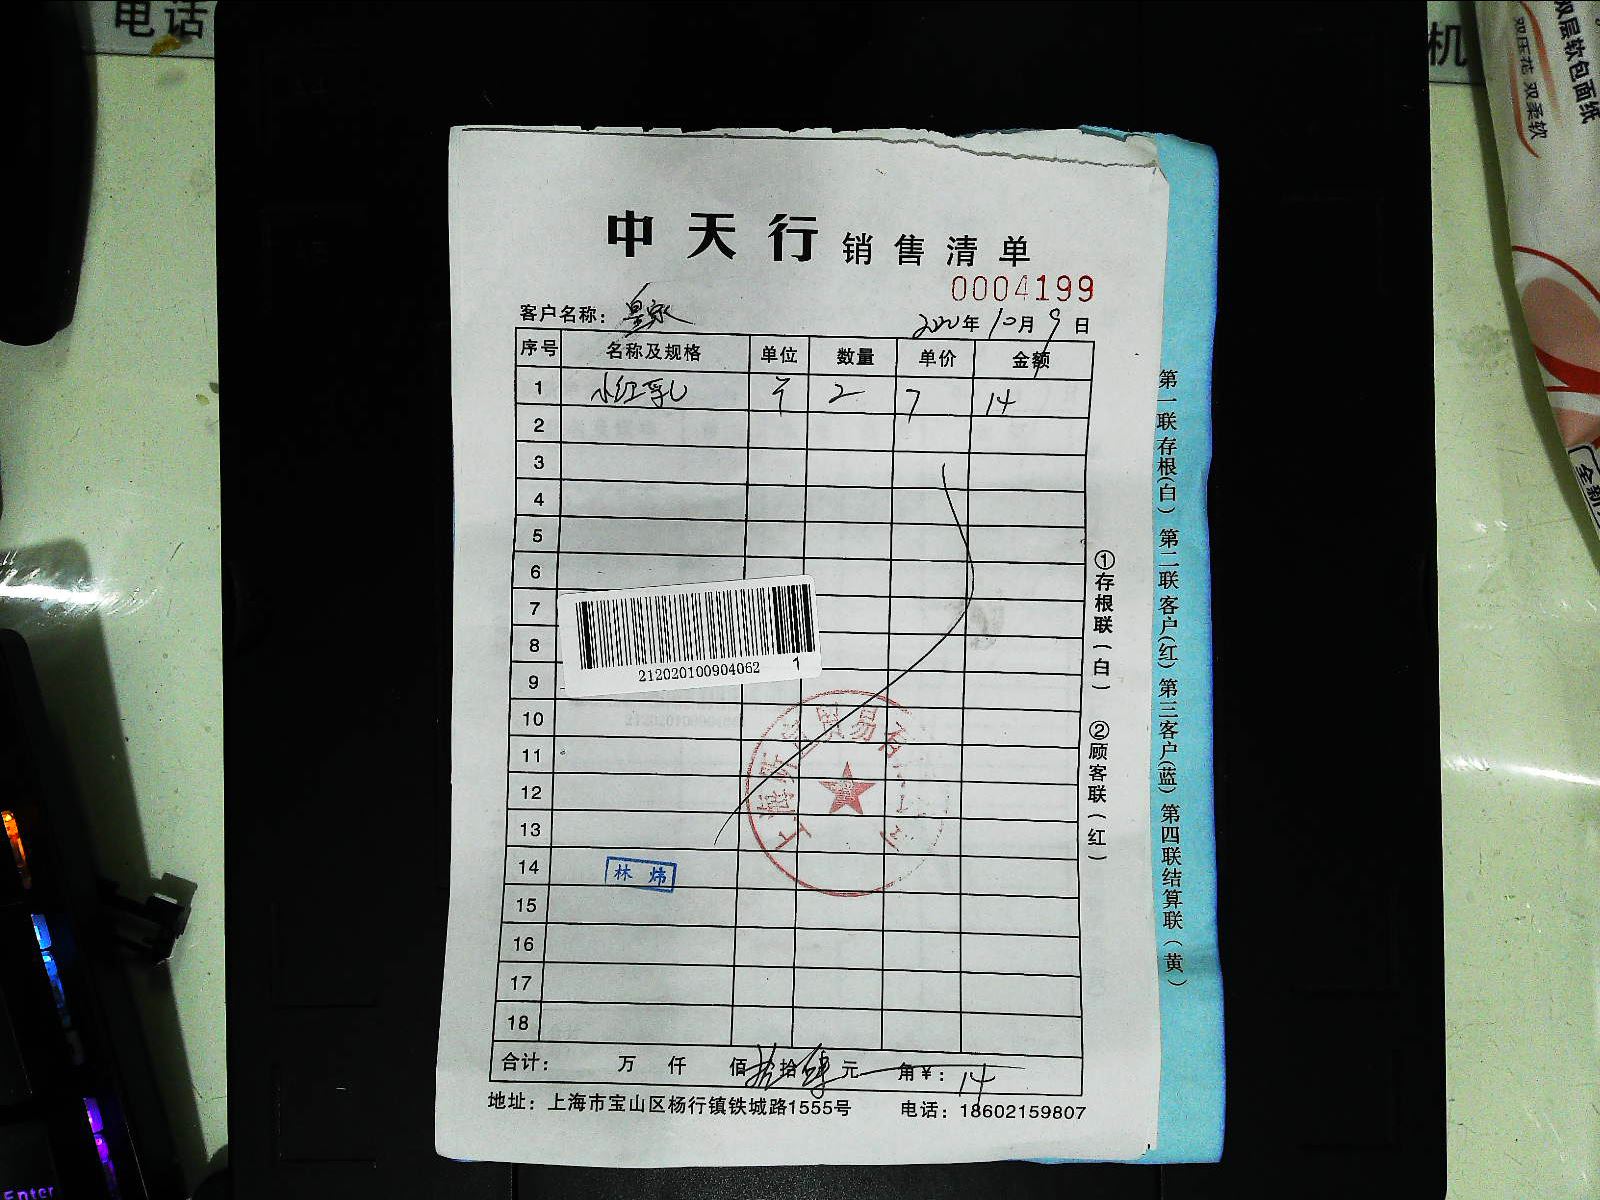 电话
机
双层软包面纸
双压花 双柔软
中天行 销售清单
0004199
客户名称：皇家 2020年10月9日
序号 名称及规格 单位 数量 单价 金额
1 小红乳 2 7 14
2
3
4
5
6
7
8
9
10
11
12
13
14
15
16
17
18
212020100904062 1
林炜
合计： 万 仟 佰 拾拾肆元 角￥：14
地址：上海市宝山区杨行镇铁城路1555号 电话：18602159807
①存根联（白） ②顾客联（红）
第一联存根（白）第二联客户（红）第三客户（蓝）第四联结算联（黄）
Enter